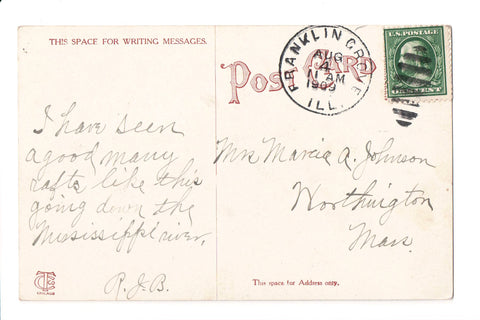 THIS SPACE FOR WRITING MESSAGES.
POST CARD
FRANKLIN GROVE
AUG
4
11 AM
1909
ILL.
U.S. POSTAGE
I have seen
a good many
rafts like this
going down the
Mississippi river.
R.J.B.
Mrs Marcia A. Johnson
Worthington
Mass.
CHICAGO
This space for Address only.